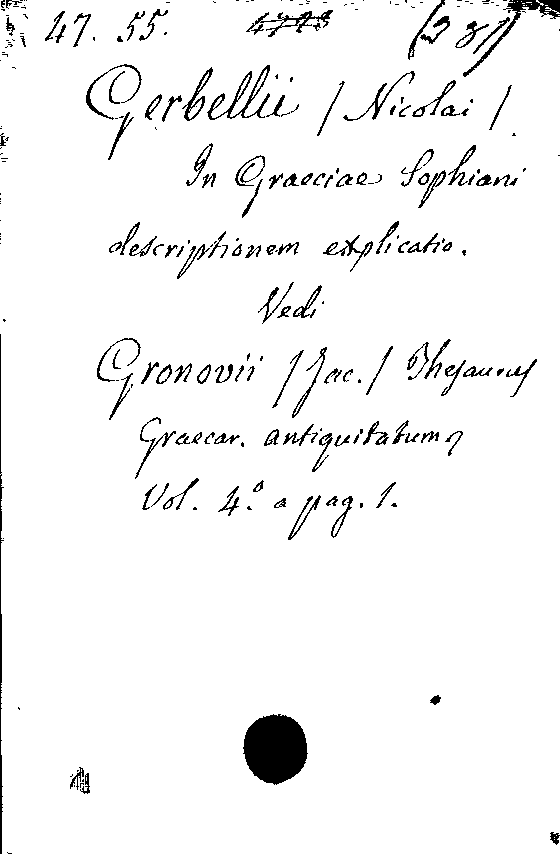 47. 55.
Gerbellii / Nicolai /
In Graeciae Sophiani
descriptionem explicatio.
Vedi
Gronovii / Jac. / Thesaurus
Graecar. antiquitatum
Vol. 4.º a pag. 1.